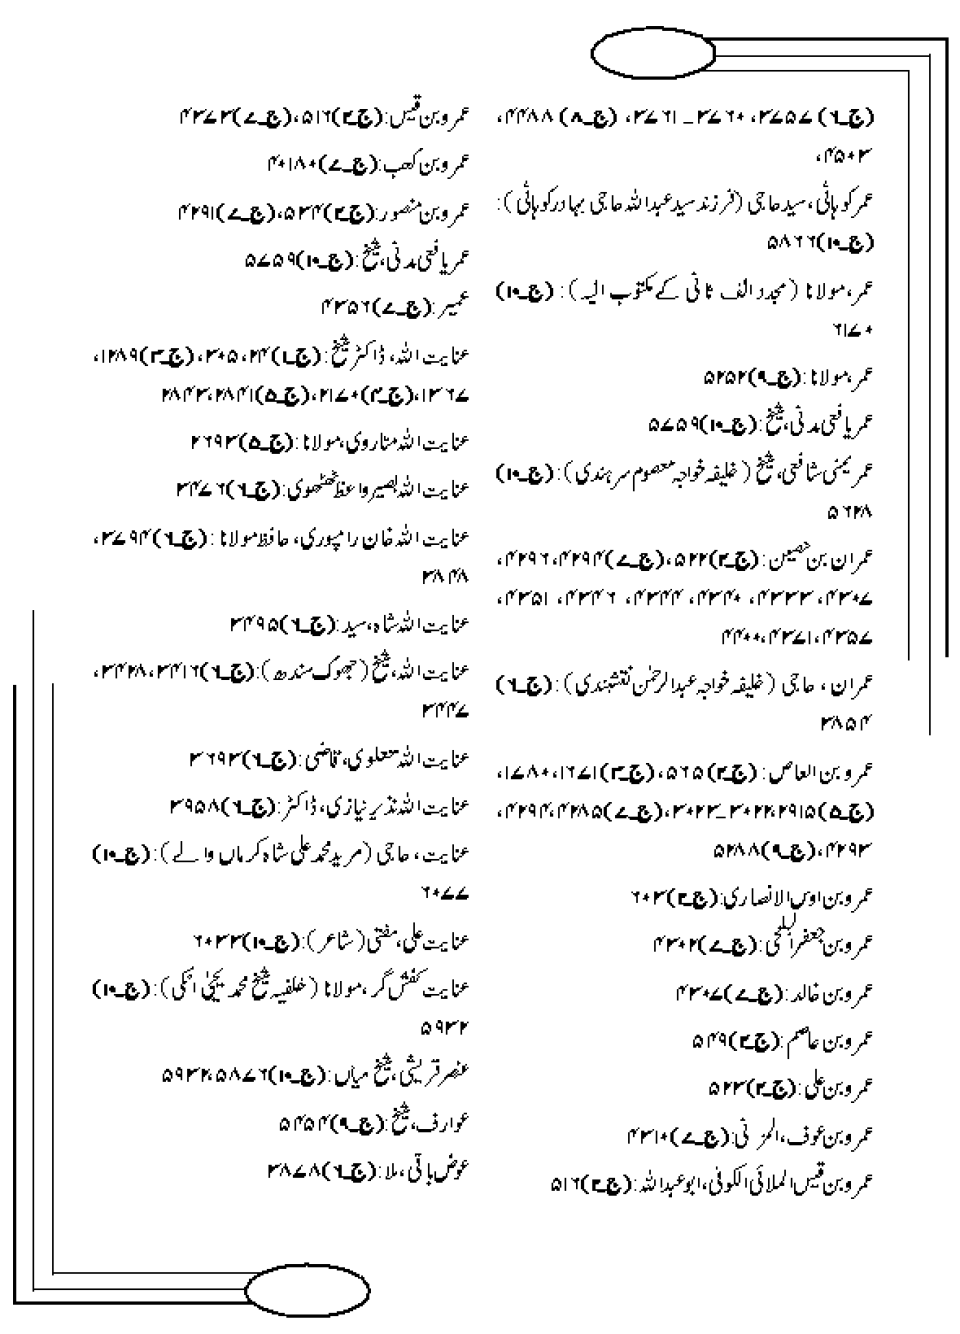 (ج۔۶) ۳۷۵۷، ۳۷۶۰۔ ۳۷۶۱، (ج۔۸) ۴۴۸۸،
۴۵۰۳،
عمر کوہاٹی، سید حاجی (فرزند سید عبداللہ حاجی بہادر کوہاٹی):
(ج۔۱۰) ۵۸۶۶
عمر، مولانا (مجدد الف ثانی کے مکتوب الیہ): (ج۔۱۰)
۶۱۷۰
عمر، مولانا: (ج۔۹) ۵۲۵۲
عمر یافعی مدنی، شیخ: (ج۔۱۰) ۵۷۵۹
عمر یمنی شافعی، شیخ (خلیفہ خواجہ معصوم سرہندی): (ج۔۱۰)
۵۶۲۸
عمران بن حصین: (ج۔۲) ۵۲۲، (ج۔۷) ۴۲۹۴، ۴۲۹۶،
۴۳۰۷، ۴۳۳۳، ۴۳۴۰، ۴۳۴۴، ۴۳۴۶، ۴۳۵۱،
۴۳۵۷، ۴۳۷۱، ۴۴۰۰
عمران، حاجی (خلیفہ خواجہ عبدالرحمٰن نقشبندی): (ج۔۶)
۳۸۵۴
عمرو بن العاص: (ج۔۲) ۵۶۵، (ج۔۳) ۱۶۷۱، ۱۷۸۰،
(ج۔۵) ۲۹۱۵، ۳۰۲۲۔۳۰۲۳، (ج۔۷) ۴۲۸۵، ۴۲۹۴،
۴۲۹۳، (ج۔۹) ۵۲۸۸
عمرو بن اوس الانصاری: (ج۔۲) ۶۰۳
عمرو بن جعفر البلخی: (ج۔۷) ۴۳۰۲
عمرو بن خالد: (ج۔۷) ۴۳۰۷
عمرو بن عاصم: (ج۔۲) ۵۴۹
عمرو بن علی: (ج۔۲) ۵۲۳
عمرو بن عوف، المزنی: (ج۔۷) ۴۳۱۰
عمرو بن قیس الملائی الکوفی، ابو عبداللہ: (ج۔۲) ۵۱۶
عمرو بن قیس: (ج۔۲) ۵۱۶، (ج۔۷) ۴۳۷۳
عمرو بن کعب: (ج۔۷) ۴۰۱۸۰
عمرو بن منصور: (ج۔۲) ۵۳۴، (ج۔۷) ۴۲۹۱
عمر یافعی مدنی، شیخ: (ج۔۱۰) ۵۷۵۹
عمیر: (ج۔۷) ۴۳۵۶
عنایت اللہ، ڈاکٹر شیخ: (ج۔۱) ۲۴، ۳۰۵، (ج۔۳) ۱۲۸۹،
۱۳۶۷، (ج۔۴) ۲۱۷۰، (ج۔۵) ۲۸۴۱، ۲۸۴۳
عنایت اللہ مناروی، مولانا: (ج۔۵) ۲۶۹۳
عنایت اللہ بصیر واعظ ٹھٹھوی: (ج۔۶) ۳۴۷۶
عنایت اللہ خان رامپوری، حافظ مولانا: (ج۔۶) ۳۷۹۴،
۳۸۴۸
عنایت اللہ شاہ، سید: (ج۔۶) ۳۴۹۵
عنایت اللہ، شیخ (جھوک سندھ): (ج۔۶) ۳۴۱۶، ۳۴۲۸،
۳۴۴۷
عنایت اللہ متعلوی، قاضی: (ج۔۶) ۳۶۹۳
عنایت اللہ نذیر نیازی، ڈاکٹر: (ج۔۶) ۳۹۵۸
عنایت، حاجی (مرید محمد علی شاہ کرماں والے): (ج۔۱۰)
۶۰۷۷
عنایت علی، مفتی (شاعر): (ج۔۱۰) ۶۰۳۳
عنایت کفش گر، مولانا (خلفیہ شیخ محمد یحییٰ اٹکی): (ج۔۱۰)
۵۹۳۲
عنصر قریشی، شیخ میاں: (ج۔۱۰) ۵۸۷۶، ۵۹۳۲
عوارف، شیخ: (ج۔۹) ۵۴۵۴
عوض باقی، ملا: (ج۔۶) ۳۸۷۸